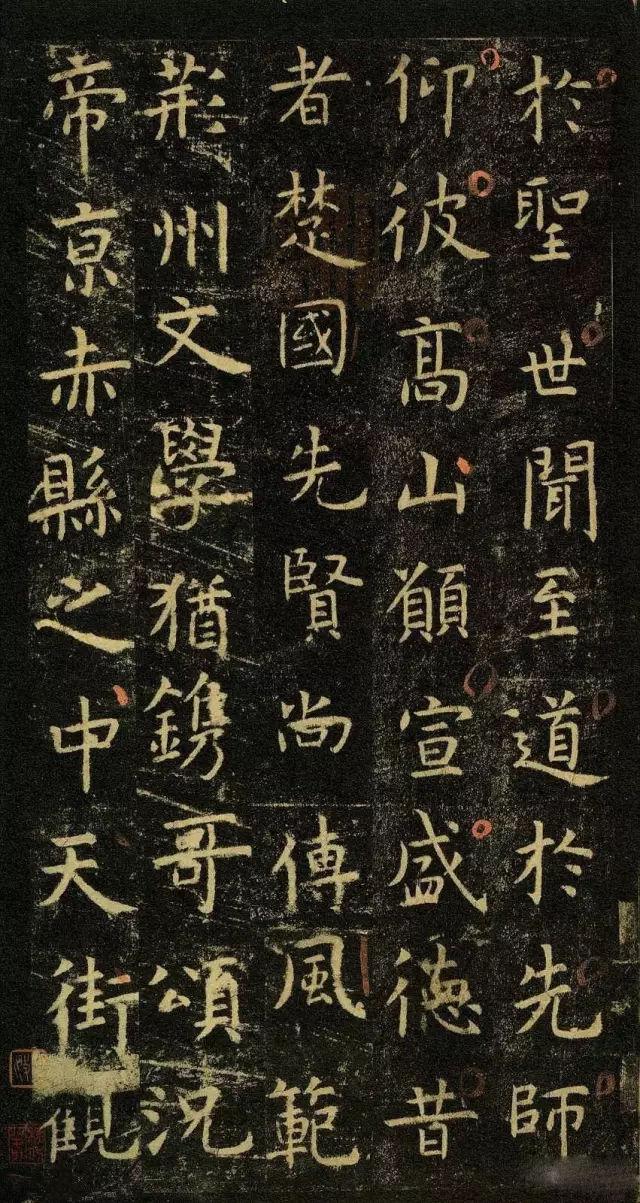 於聖世聞至道於先師
仰彼高山願宣盛德昔
者楚國先賢尚傳風範
荊州文學猶鐫哥頌況
帝京赤縣之中天街觀